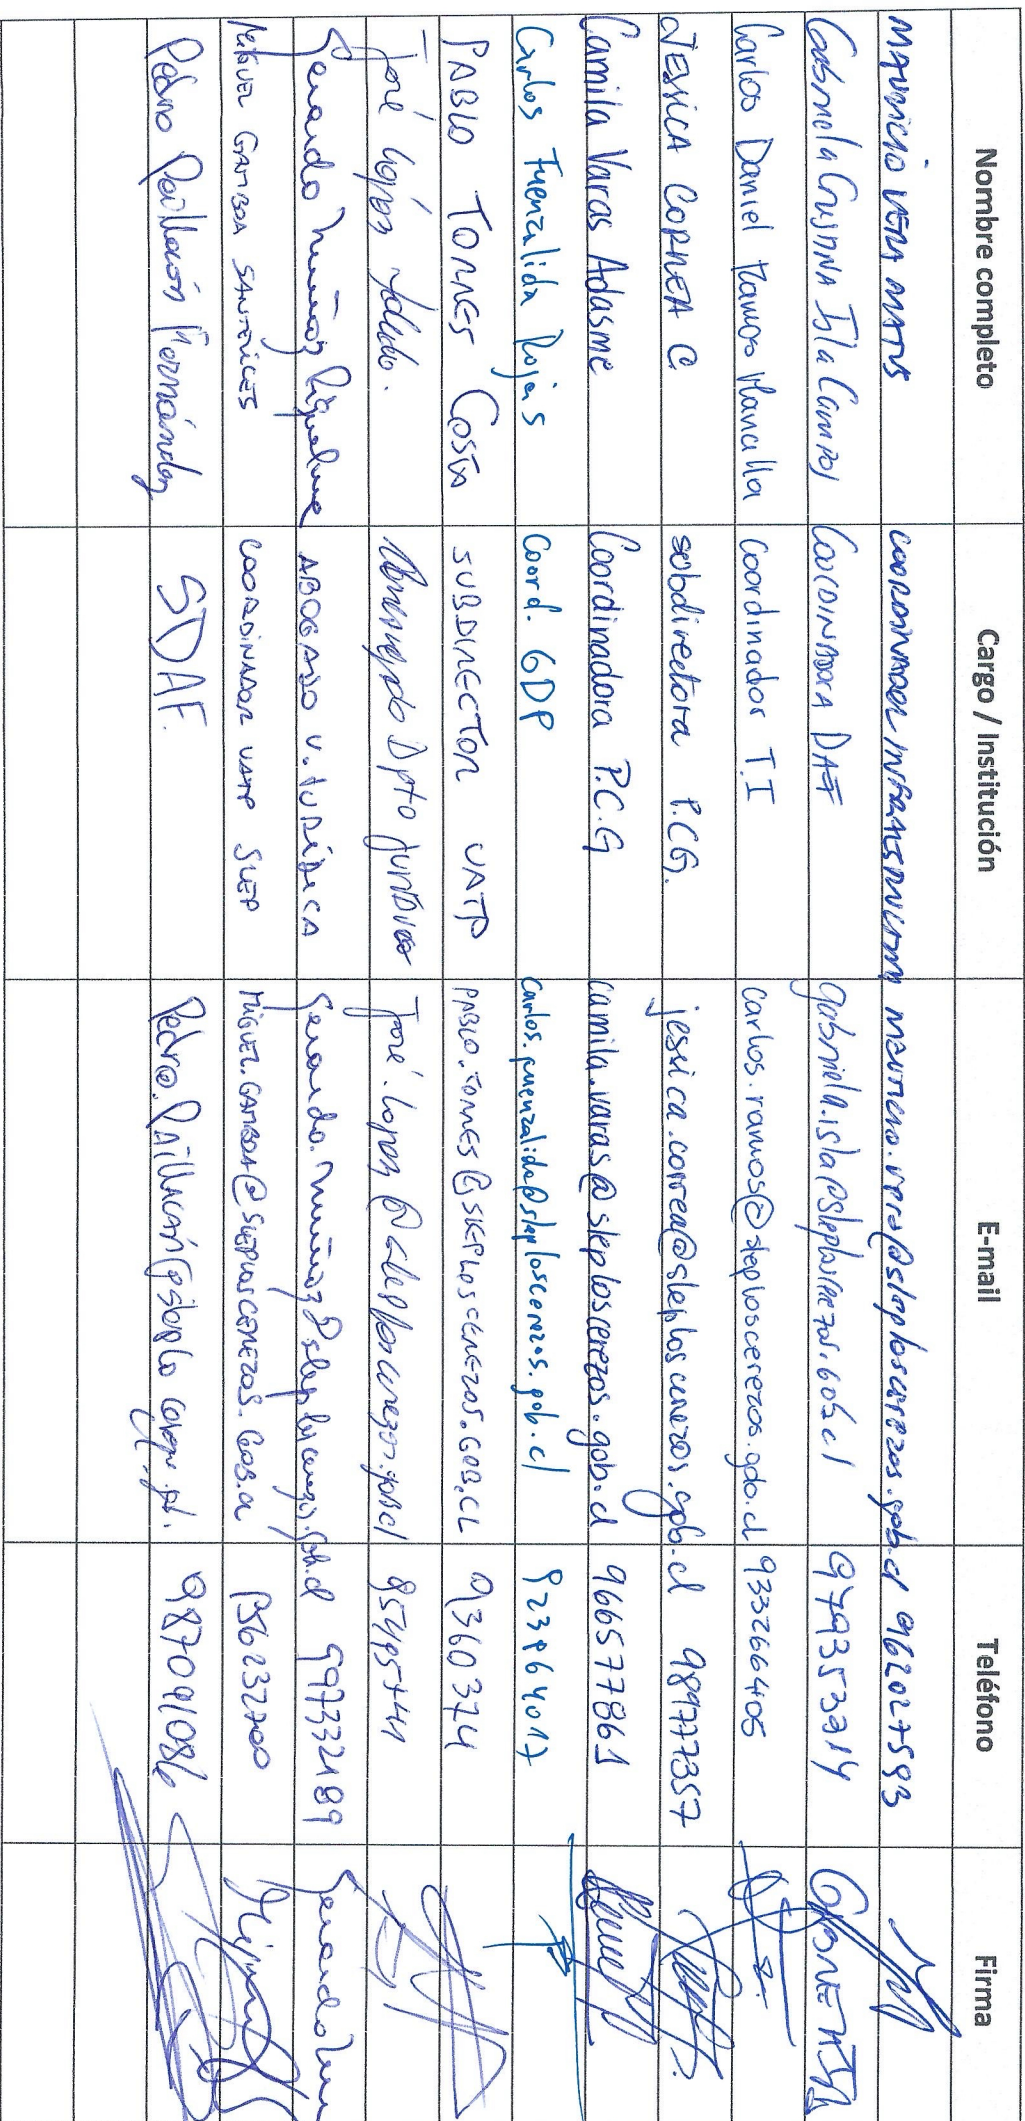 Nombre completo Cargo / Institución E-mail Teléfono Firma
MAURICIO VERA MATUS COORDINADOR INFRAESTRUCTURA mauricio.vera@sleploscerezos.gob.cl 962027593
Gabriela Cristina Isla Campos COORDINADORA DAF gabriela.isla@sleploscerezos.gob.cl 979353214
Carlos Daniel Ramos Mancilla Coordinador T.I carlos.ramos@sleploscerezos.gob.cl 933266405
JESSICA CORREA C. subdirectora P.C.G. jessica.correa@sleploscerezos.gob.cl 989777357
Camila Varas Adasme Coordinadora P.C.G camila.varas@sleploscerezos.gob.cl 966577861
Carlos Fuenzalida Rojas Coord. GDP carlos.fuenzalida@sleploscerezos.gob.cl
PABLO TORRES COSTA SUBDIRECTOR UATP PABLO.TORRES@SLEPLOSCEREZOS.GOB.CL 9360374
José López Toledo. Dpto José.lopez@sleploscerezos.gob.cl
Gerardo Muñoz Riquelme ABOGADO U. JURÍDICA Gerardo.muñoz@sleploscerezos.gob.cl 997332489
MIGUEL GAMBOA SANTELICES COORDINADOR UATP SLEP MIGUEL.GAMBOA@SLEPLOSCEREZOS.GOB.CL
Pedro Paillacán Hernández SDAF. 987091086